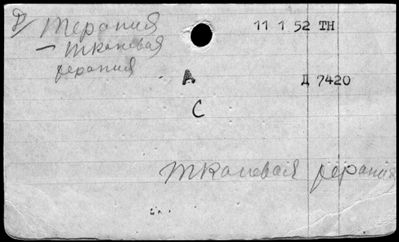 Терапия 11 1 52 TH
— тканевая
терапия
А Д 7420
С
тканевая терапия